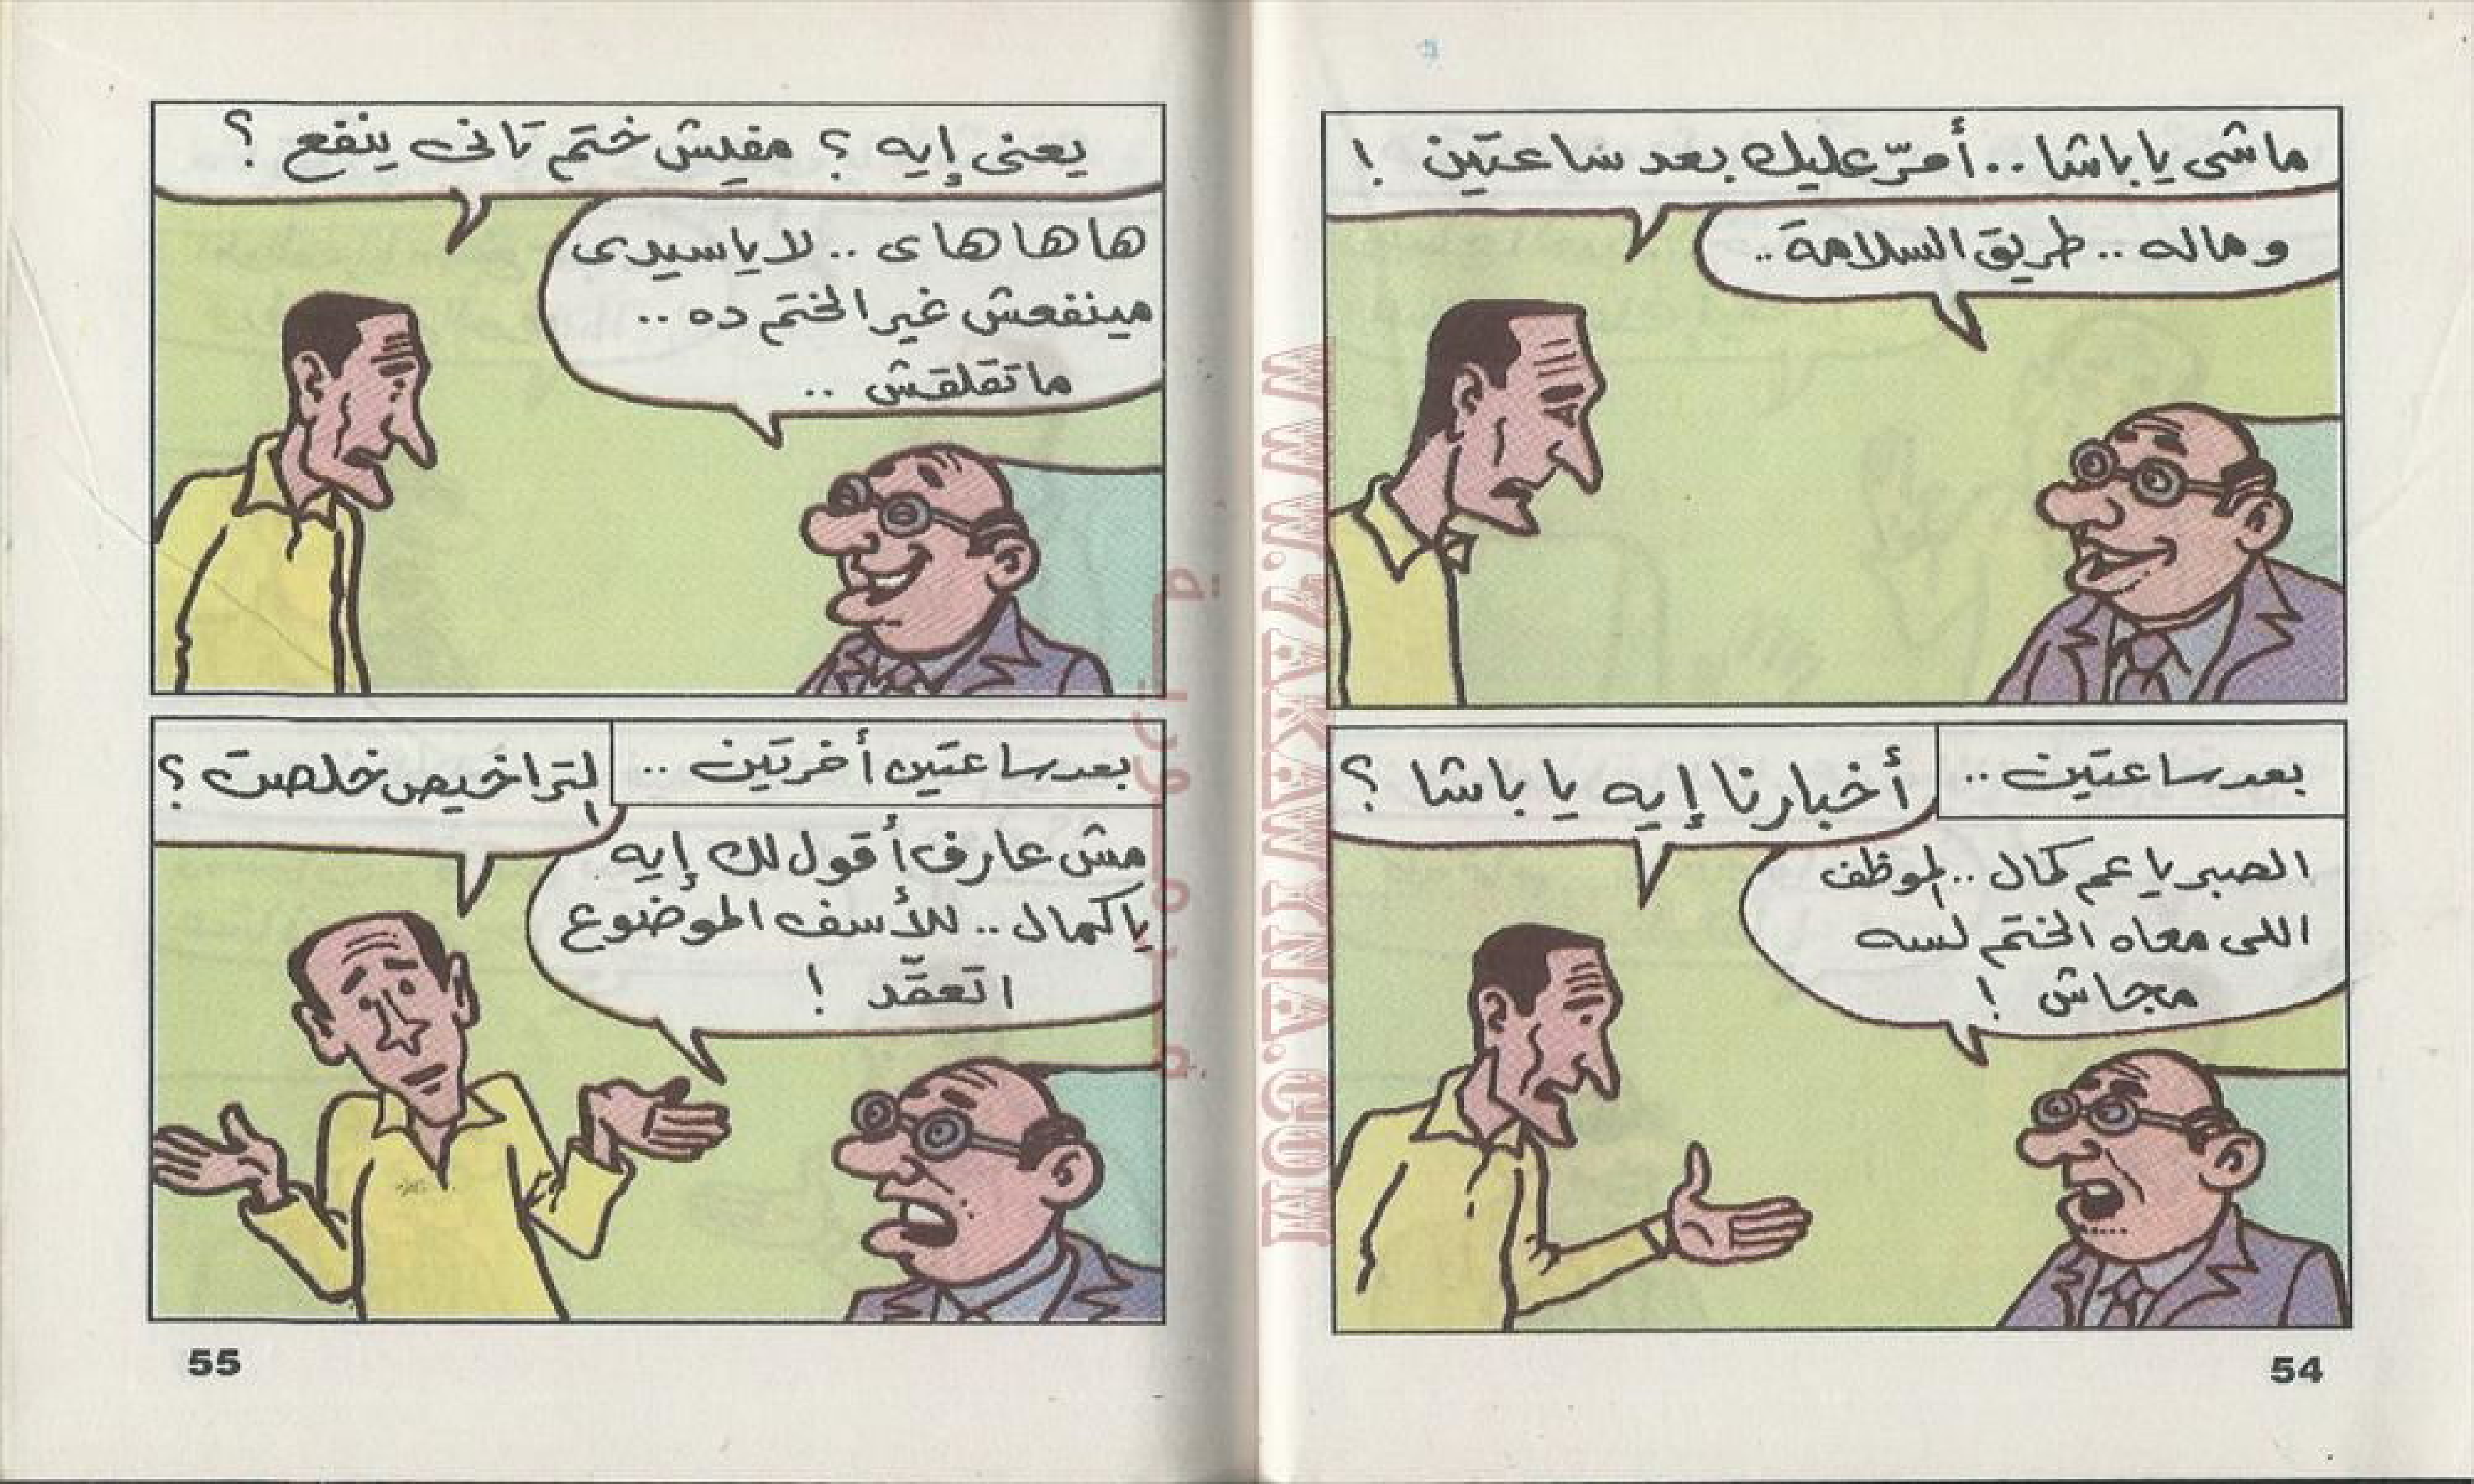 ماشى يا باشا.. أمرّ عليك بعد ساعتين !
وماله .. طريق السلامة ..
بعد ساعتين ..
أخبارنا إيه يا باشا ؟
الصبر يا عم كمال .. الموظف
اللى معاه الختم لسه
مجاش !
54
يعنى إيه ؟ مفيش ختم تانى ينفع ؟
ها ها هاى .. لا يا سيدى
مينفعش غير الختم ده ..
ما تقلقش ..
بعد ساعتين أخرتين ..
التراخيص خلصت ؟
مش عارف أقول لك إيه
يا كمال .. للأسف الموضوع
اتعقّد !
55